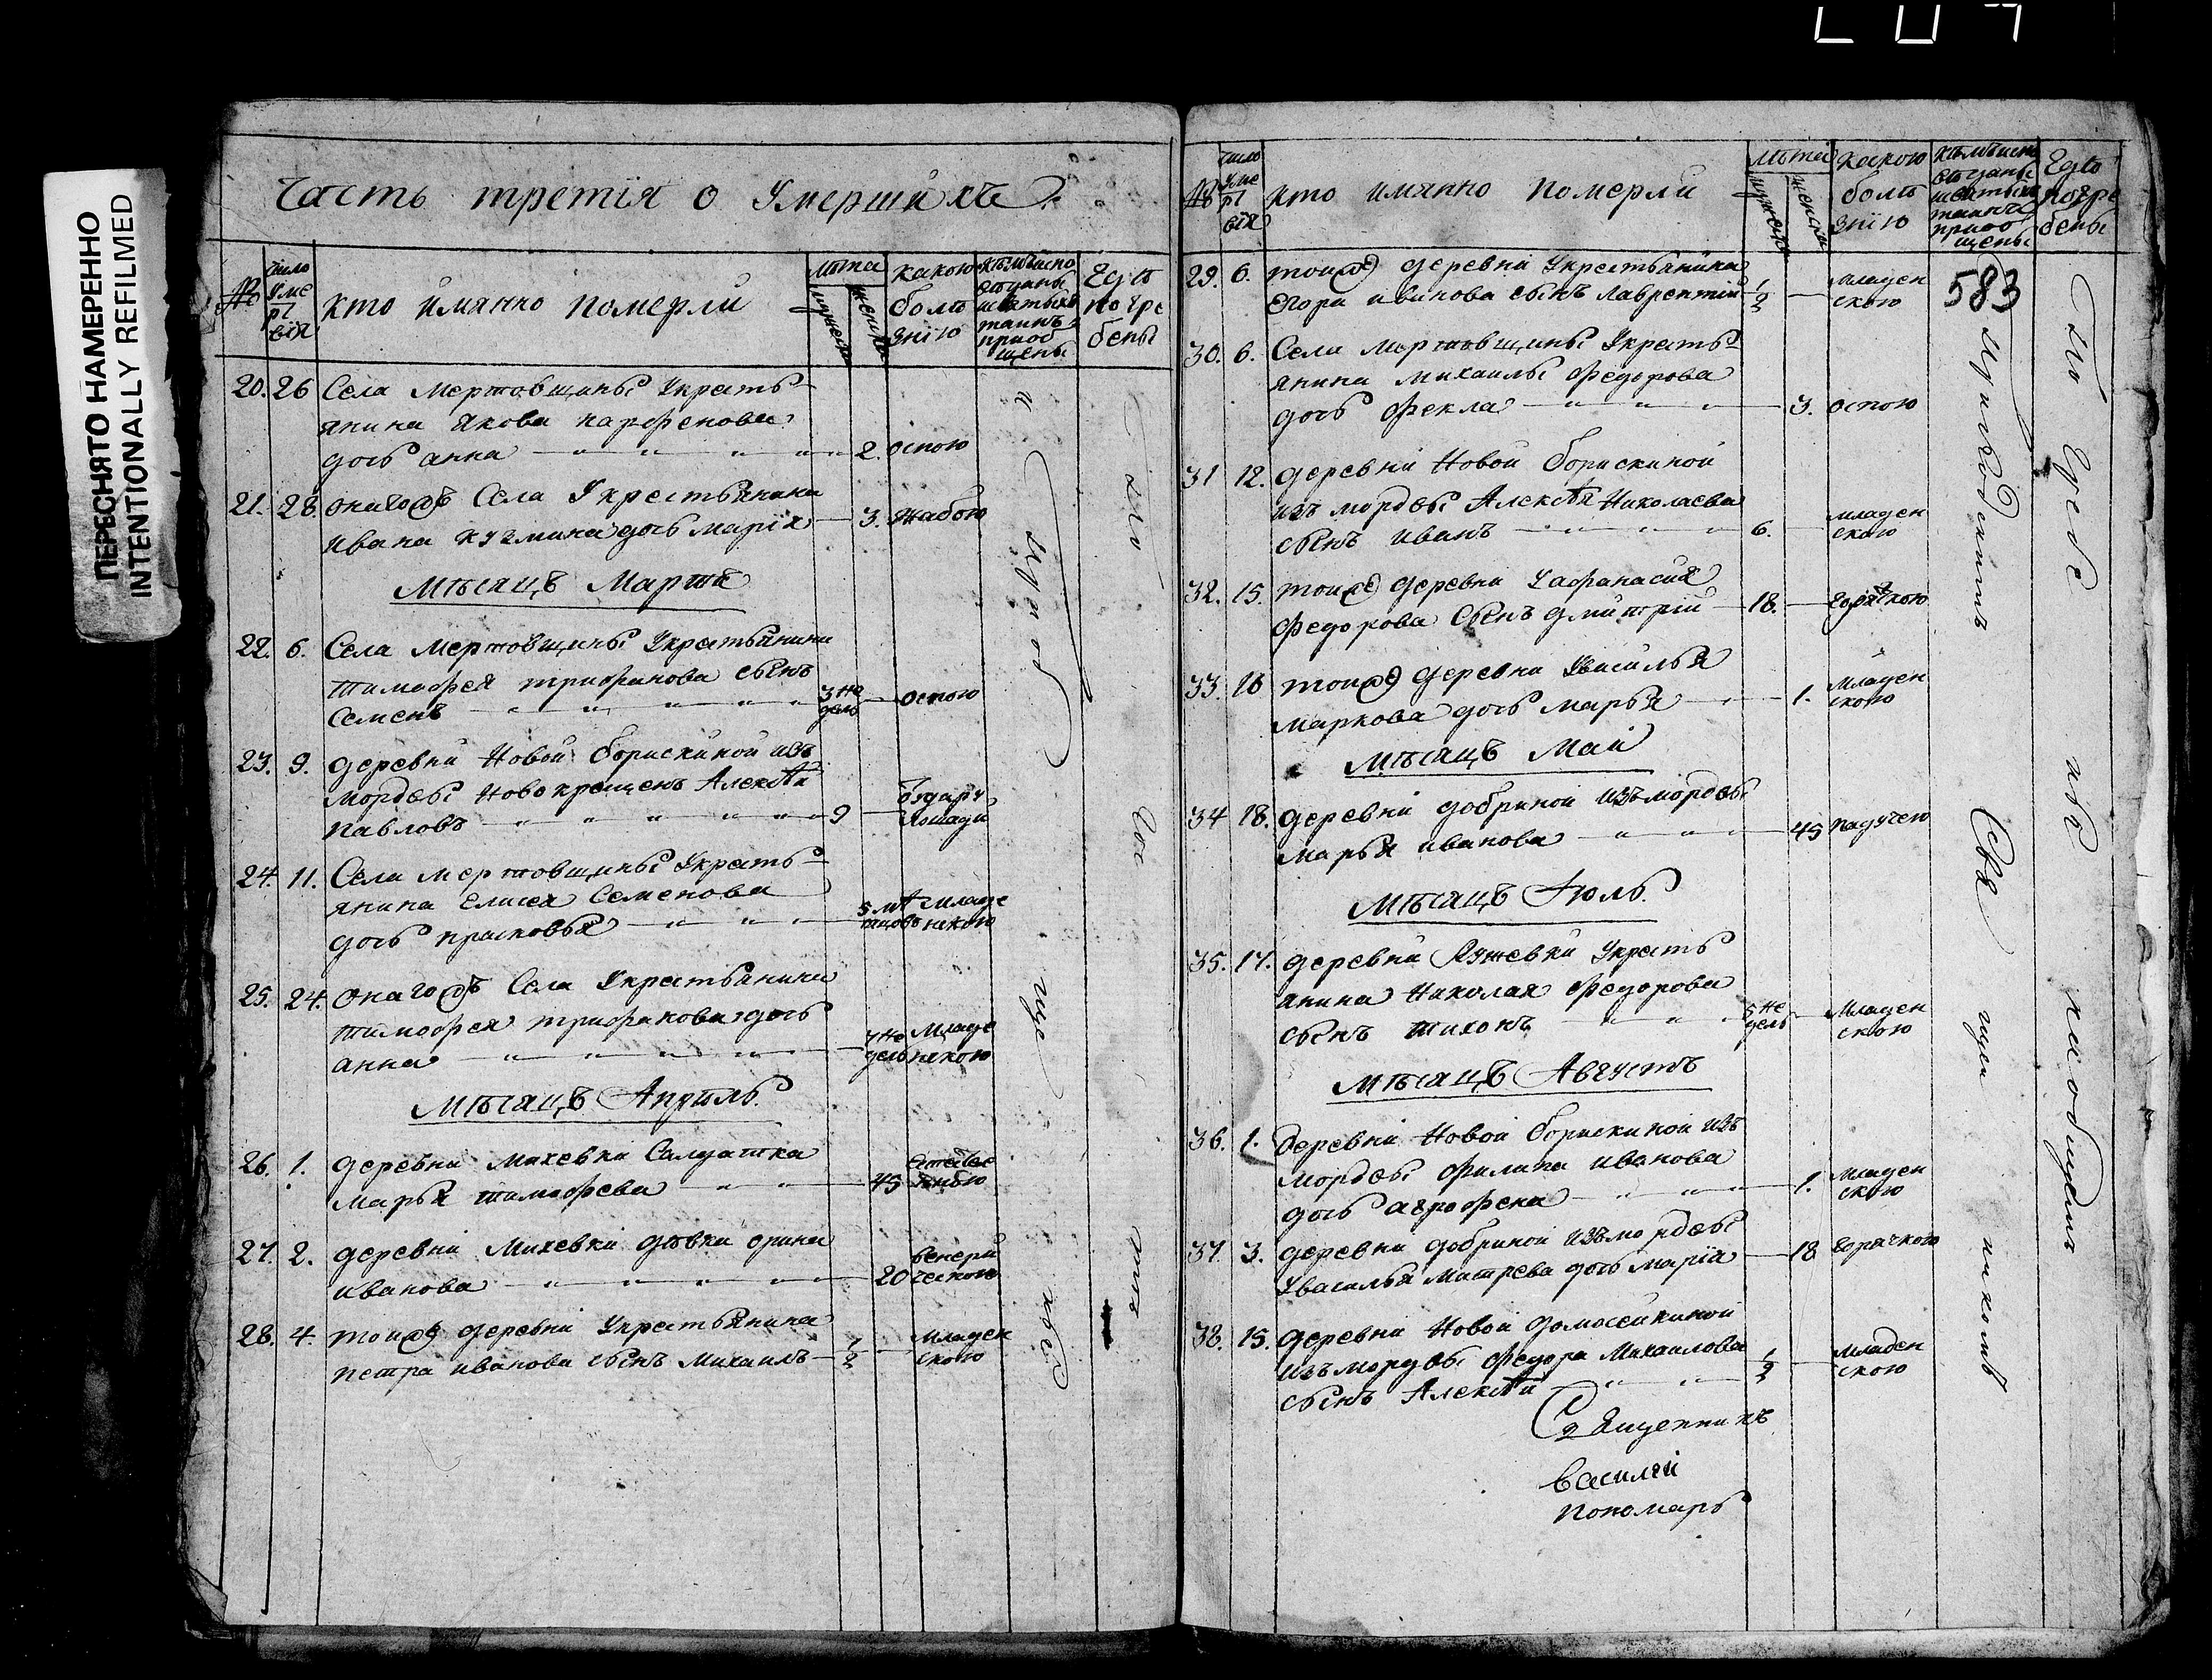 ПЕРЕСНЯТО НАМЕРЕННО
INTENTIONALLY REFILMED
Часть третія о Умершихъ.
№
число
уме
рт
вія
кто имянно померли
лѣта
мужеска
женска
какою
болѣ
знїю
кѣмъ испо
вѣданы
и святыхъ
таинъ
приоб
щены
Где
погре
бены
20. 26 Села Мертовщины Укресть
янина Якова парфенова
дочь анна 2. оспою
21. 28. онагожъ Села Укрестьянина
Ивана кузмина дочь марія 3. Жабою
Мѣсяцъ Мартъ
22. 6. Села Мертовщины Укрестьянина
тимофея трифанова сынъ
Семенъ 3 не
дель оспою
23. 9. деревни Новой борискиной изъ
Мордвы Новокрещенъ Алексѣй
Павловъ 9
лошади
24. 11. Села мертовщины Укресть
янина Елисея Семенова
дочь прасковья 5 младе
нскою
25. 24. Онагожъ Села Укрестьянина
тимофея трифанова дочь
анна 7 не
дель младе
нскою
Мѣсяцъ Апрѣль.
26. 1. деревни Михевки Салдатка
Марья тимофева 45
27. 2. деревни Михевки дѣвка орина
иванова 20 венери
ческою
28. 4. тойже деревни Укрестьянина
петра иванова сынъ михаилъ 1/2 младен
скою
№
число
уме
рт
вія
кто имянно померли
лѣта
мужеска
женска
какою
болѣ
знїю
кѣмъ испо
вѣданы
и святыхъ
таинъ
приоб
щены
Где
погре
бены
583
29. 6. тойже деревни Укрестьянина
Егора иванова сынъ лаврентій 1/2 младен
скою
30. 6. Села Мертовщины Укресть
янина михаилы федорова
дочь фекла 3. оспою
31 12. деревни Новой борискиной
изъ мордвы Алексѣя Николаева
сынъ иванъ 6. младен
скою
32. 15. тойже деревни Уафанасия
федорова сынъ дмитрій 18. горячкою
33. 16 тойже деревни Увасилья
маркова дочь марья 1. Младен
скою
Мѣсяцъ Маи
34 18. деревни добриной изъ мордвы
марья иванова 45 падучею
Мѣсяцъ Июль.
35. 17. деревни Ряжевки Укресть
янина Николая федорова
сынъ тихонъ 5 не
дель Младен
скою
Мѣсяцъ Августъ
36. 1. Деревни Новой борискиной изъ
мордвы филипа иванова
дочь аграфена 1. младен
скою
37. 3. деревни добриной изъ мордвы
Увасилья митрева дочь марія 18 горячкою
38. 15. деревни Новой домосейкиной
изъ мордвы федора Михаилова
сынъ Алексѣй 1/2 младен
скою
Священникъ
Василей
Пономарь